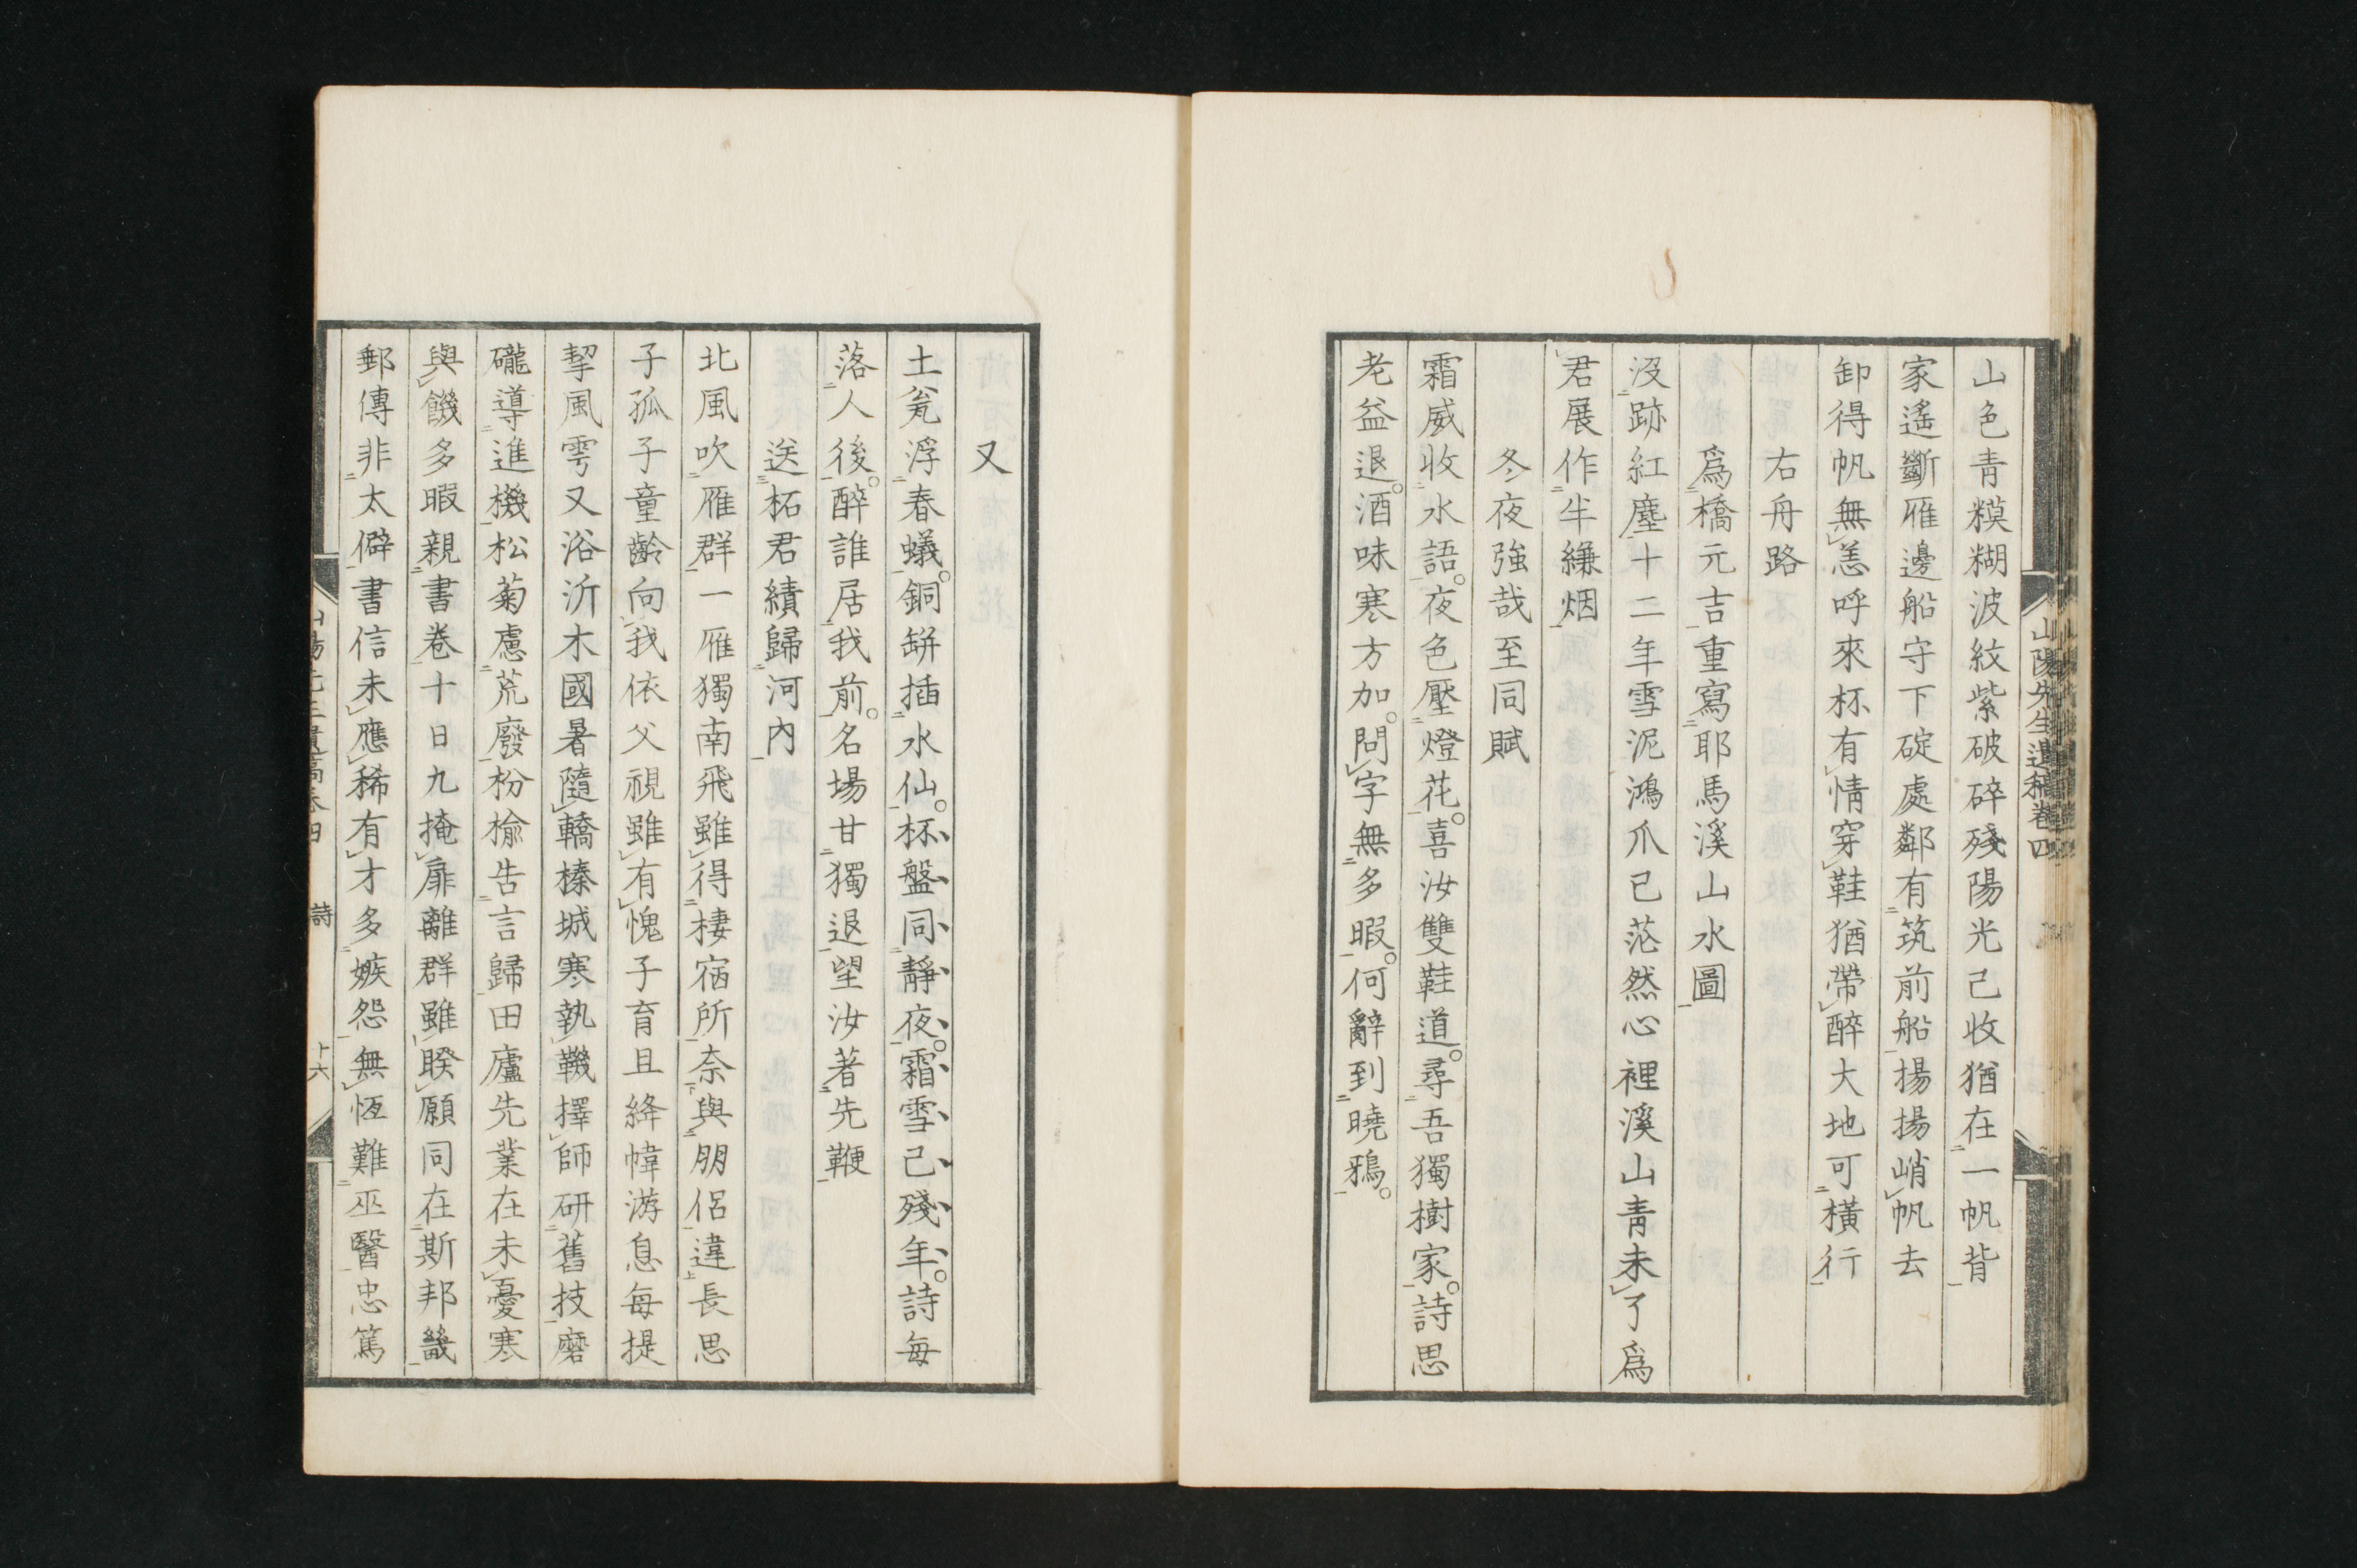 山陽先生遺稿卷四
山色青糢糊波紋紫破碎殘陽光已收猶在一帆背
家遙斷雁邊船守下碇處鄰有筑前船揚揚峭帆去
卸得帆無恙呼來杯有情穿鞋猶帶醉大地可橫行
右舟路
爲橋元吉重寫耶馬溪山水圖
沒跡紅塵十二年雪泥鴻爪已茫然心裡溪山青未了爲
君展作半縑烟
冬夜強哉至同賦
霜威收水語。夜色壓燈花。喜汝雙鞋道。尋吾獨樹家。詩思
老益退。酒味寒方加。問字無多暇。何辭到曉鴉。
又
土瓮浮春蟻。銅缾插水仙。杯盤同靜夜。霜雪已殘年。詩每
落人後。醉誰居我前。名場甘獨退望汝著先鞭
送柘君績歸河內
北風吹雁群一雁獨南飛雖得棲宿所奈與朋侶違長思
子孤子童齡向我依父視雖有愧子育且絳幃游息每提
挈風雩又浴沂木國暑隨轎榛城寒執鞿擇師研舊技磨
礲導進機松菊慮荒廢枌楡告言歸田廬先業在未憂寒
與饑多暇親書卷十日九掩扉離群雖睽願同在斯邦畿
郵傳非太僻書信未應稀有才多嫉怨無恆難巫醫忠篤
詩
十六